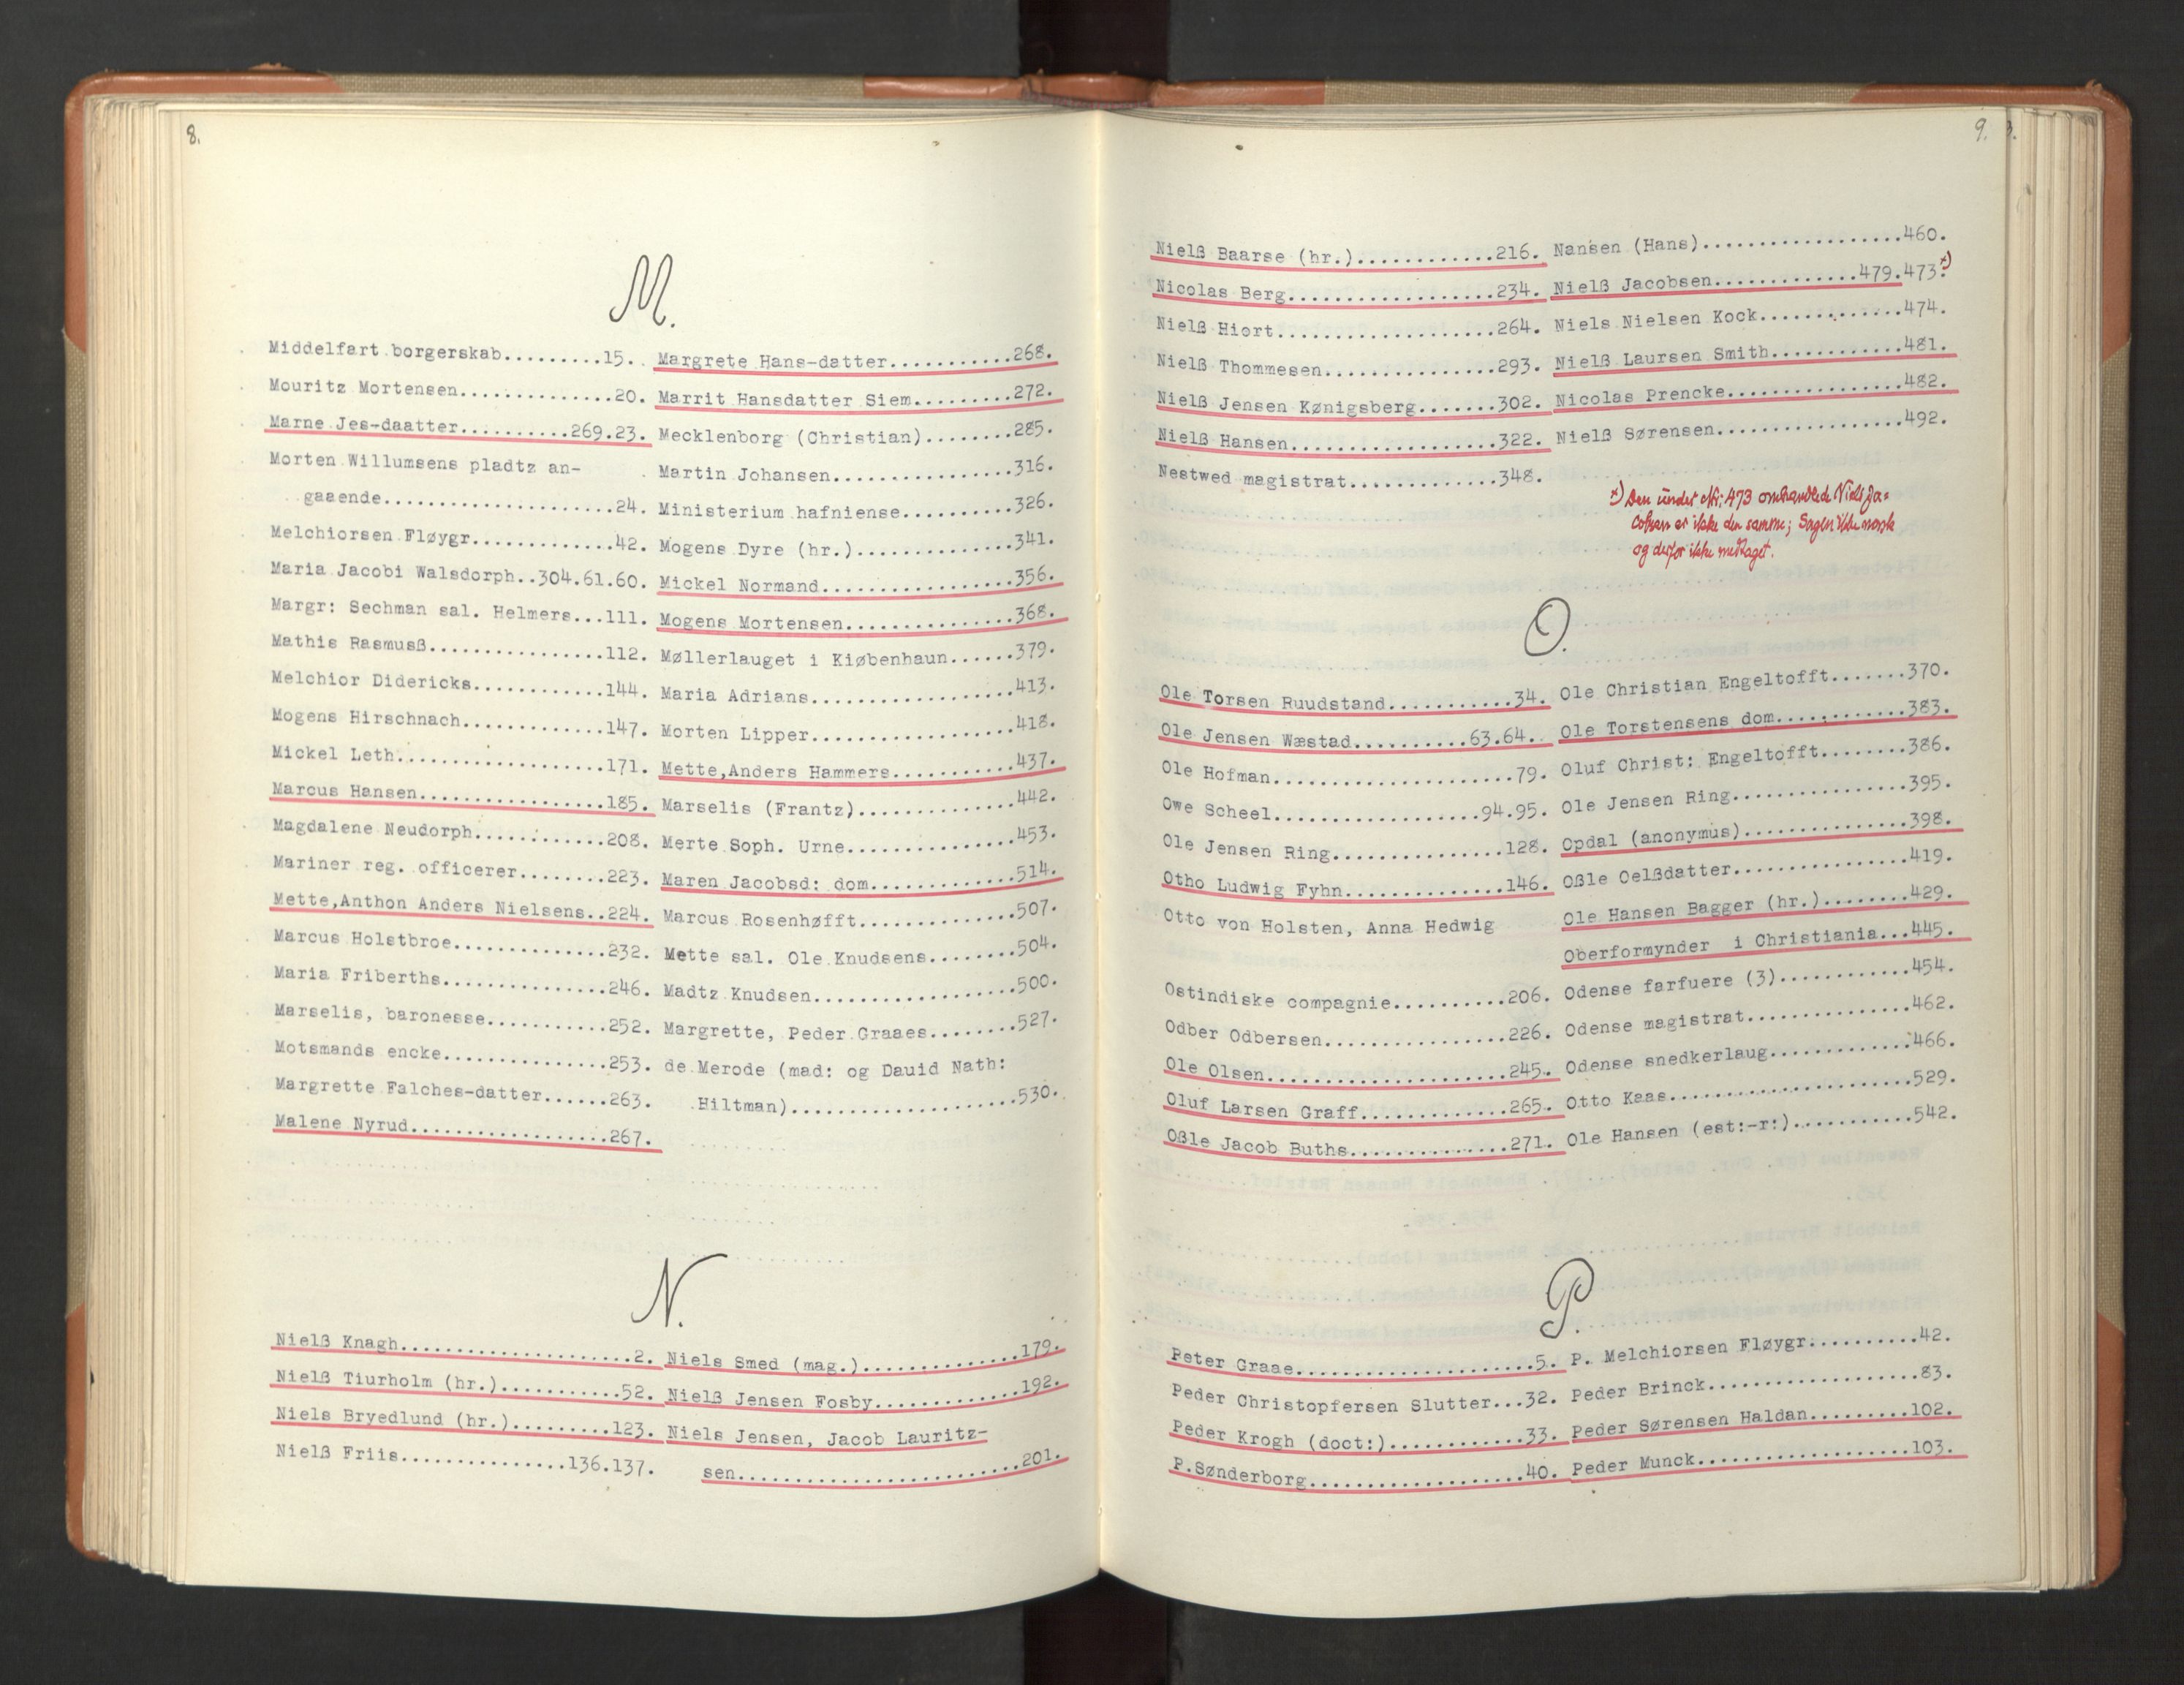 8.
M.
Middelfart borgerskab.........15.
Mouritz Mortensen..............20.
Marne Jes-daatter..........269.23.
Morten Willumsens pladtz an-
gaaende.....................24.
Melchiorsen Fløygr.............42.
Maria Jacobi Walsdorph..304.61.60.
Margr: Sechman sal. Helmers...111.
Mathis Rasmusß................112.
Melchior Didericks............144.
Mogens Hirschnach.............147.
Mickel Leth...................171.
Marcus Hansen.................185.
Magdalene Neudorph............208.
Mariner reg. officerer........223.
Mette,Anthon Anders Nielsens..224.
Marcus Holstbroe..............232.
Maria Friberths...............246.
Marselis, baronesse...........252.
Motsmands encke...............253.
Margrette Falches-datter......263.
Malene Nyrud..................267.
Margrete Hans-datter...........268.
Marrit Hansdatter Siem.........272.
Mecklenborg (Christian)........285.
Martin Johansen................316.
Ministerium hafniense..........326.
Mogens Dyre (hr.)..............341.
Mickel Normand.................356.
Mogens Mortensen...............368.
Møllerlauget i Kiøbenhaun......379.
Maria Adrians..................413.
Morten Lipper..................418.
Mette,Anders Hammers...........437.
Marselis (Frantz)..............442.
Merte Soph. Urne...............453.
Maren Jacobsd: dom.............514.
Marcus Rosenhøfft..............507.
Mette sal. Ole Knudsens........504.
Madtz Knudsen..................500.
Margrette, Peder Graaes........527.
de Merode (mad: og Dauid Nath:
Hiltman)....................530.
N.
Nielß Knagh.....................2.
Nielß Tiurholm (hr.)...........52.
Niels Bryedlund (hr.).........123.
Nielß Friis...............136.137.
Niels Smed (mag.)..............179.
Nielß Jensen Fosby.............192.
Niels Jensen, Jacob Lauritz-
sen.........................201.
9.
Nielß Baarse (hr.)............216.
Nicolas Berg..................234.
Nielß Hiort...................264.
Nielß Thommesen...............293.
Nielß Jensen Kønigsberg.......302.
Nielß Hansen..................322.
Nestwed magistrat.............348.
Nansen (Hans)..................460.
Nielß Jacobsen.............479.473.x)
Niels Nielsen Kock.............474.
Nielß Laursen Smith............481.
Nicolas Prencke................482.
Nielß Sørensen.................492.
x) Den under Nr: 473 omhandlede Niels Ja=
cobsen er ikke den samme; Sagen ikke norsk
og derfor ikke medtaget.
O.
Ole Torsen Ruudstand...........34.
Ole Jensen Wæstad..........63.64.
Ole Hofman.....................79.
Owe Scheel..................94.95.
Ole Jensen Ring...............128.
Otho Ludwig Fyhn..............146.
Otto von Holsten, Anna Hedwig
Ostindiske compagnie..........206.
Odber Odbersen................226.
Ole Olsen.....................245.
Oluf Larsen Graff.............265.
Oßle Jacob Buths..............271.
Ole Christian Engeltofft.......370.
Ole Torstensens dom............383.
Oluf Christ: Engeltofft........386.
Ole Jensen Ring................395.
Opdal (anonymus)...............398.
Oßle Oelßdatter................419.
Ole Hansen Bagger (hr.)........429.
Oberformynder i Christiania...445.
Odense farfuere (3)............454.
Odense magistrat...............462.
Odense snedkerlaug.............466.
Otto Kaas......................529.
Ole Hansen (est:-r:)...........542.
P.
Peter Graae.....................5.
Peder Christopfersen Slutter...32.
Peder Krogh (doct:)............33.
P.Sønderborg...................40.
P. Melchiorsen Fløygr..........42.
Peder Brinck...................83.
Peder Sørensen Haldan.........102.
Peder Munck...................103.